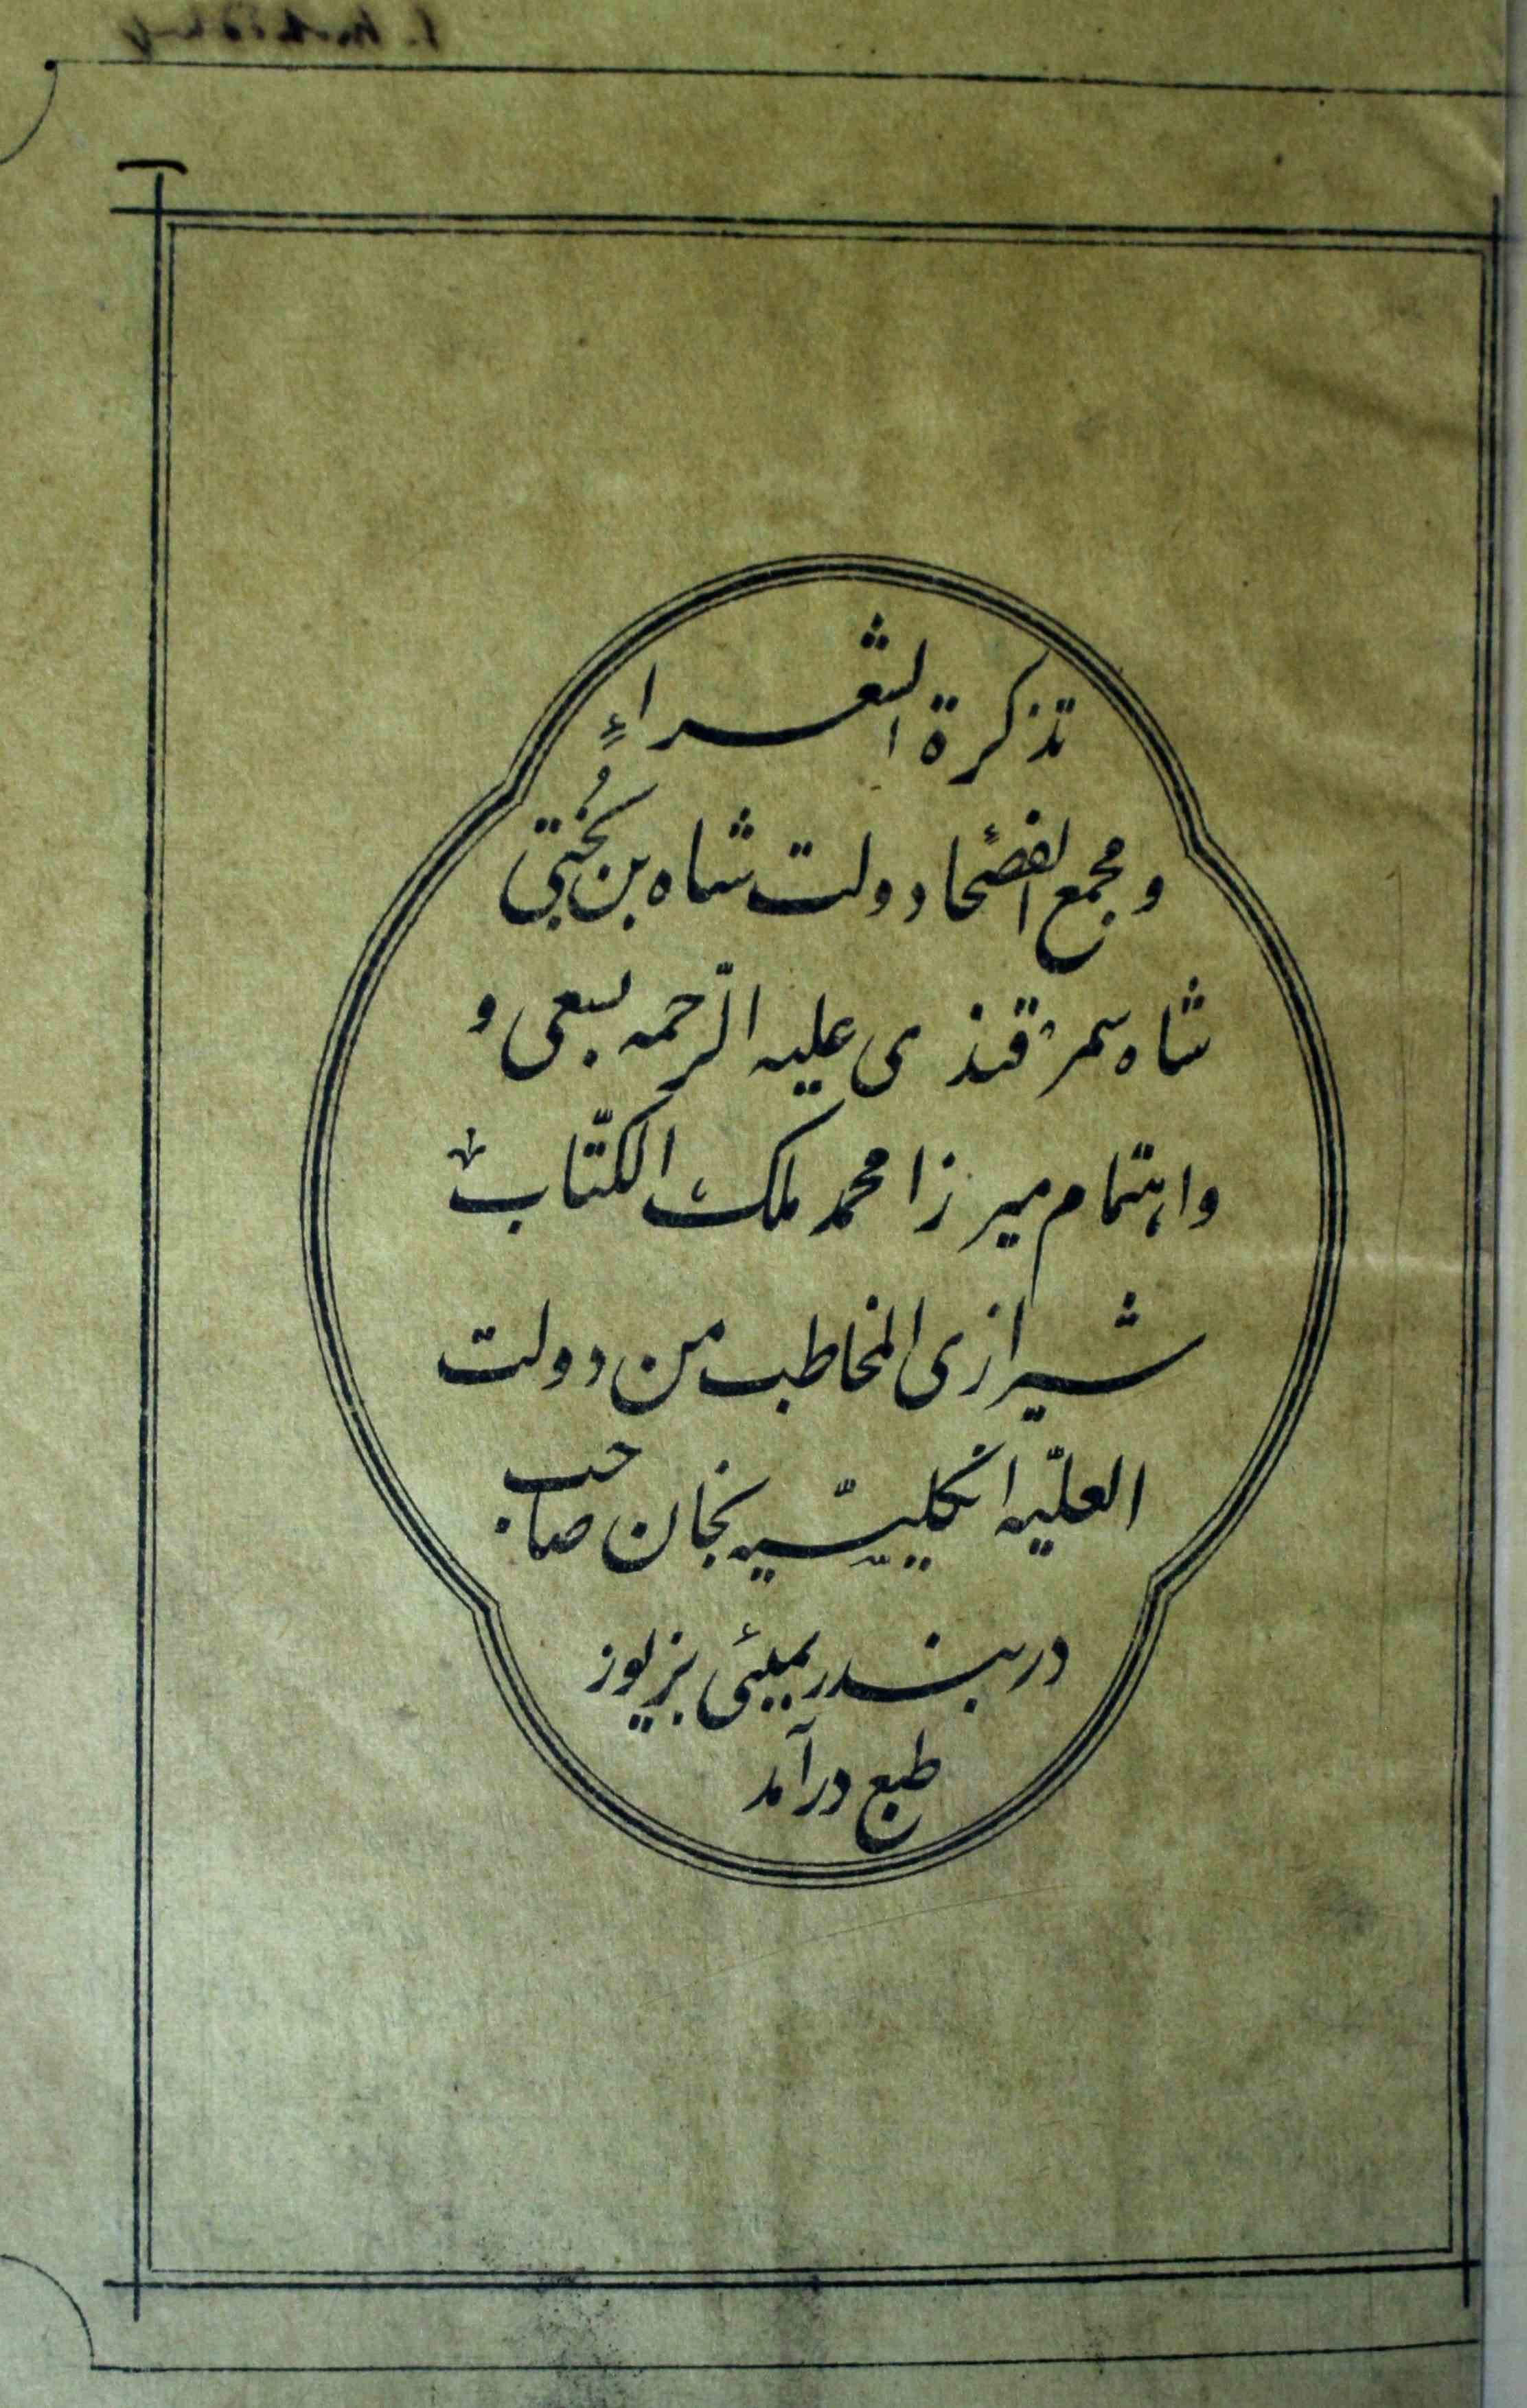 تذكرة الشعراءِ
و مجمع الفصحا دولت شاه بن بُختی
شاه سمرقندی علیه الرّحمه بسعی و
واهتمام میرزا محمد ملک الکتّاب
شیرازی المخاطب من دولت
العلیّه انگلیسیّه بخان صاحب
در بندر بمبئی بزیور
طبع درآمد